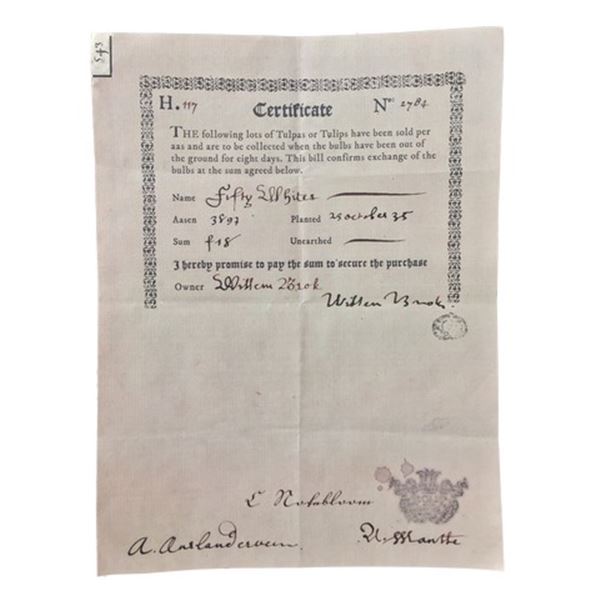 543
H. 117 Certificate No. 2784
THE following lots of Tulpas or Tulips have been sold per
aas and are to be collected when the bulbs have been out of
the ground for eight days. This bill confirms exchange of the
bulbs at the sum agreed below.
Name Fifty Whites
Aasen 3897 Planted 23 october 35
Sum f 18 Unearthed
I hereby promise to pay the sum to secure the purchase
Owner Willem Brok
Willem Brok
C Notebloom
A.